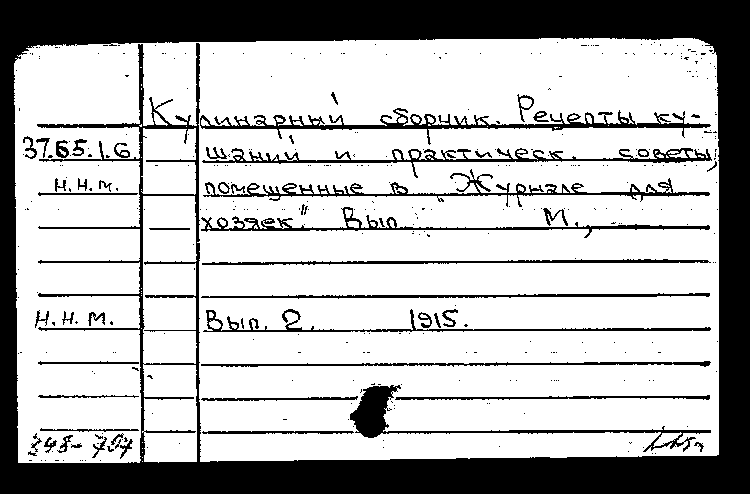 Кулинарный сборник. Рецепты ку-
37.65.1.6. шаний и практическ. советы,
Н.Н.М. помещенные в „Журнале для
хозяек." Вып. М.,
Н.Н.М. Вып. 2. 1915.